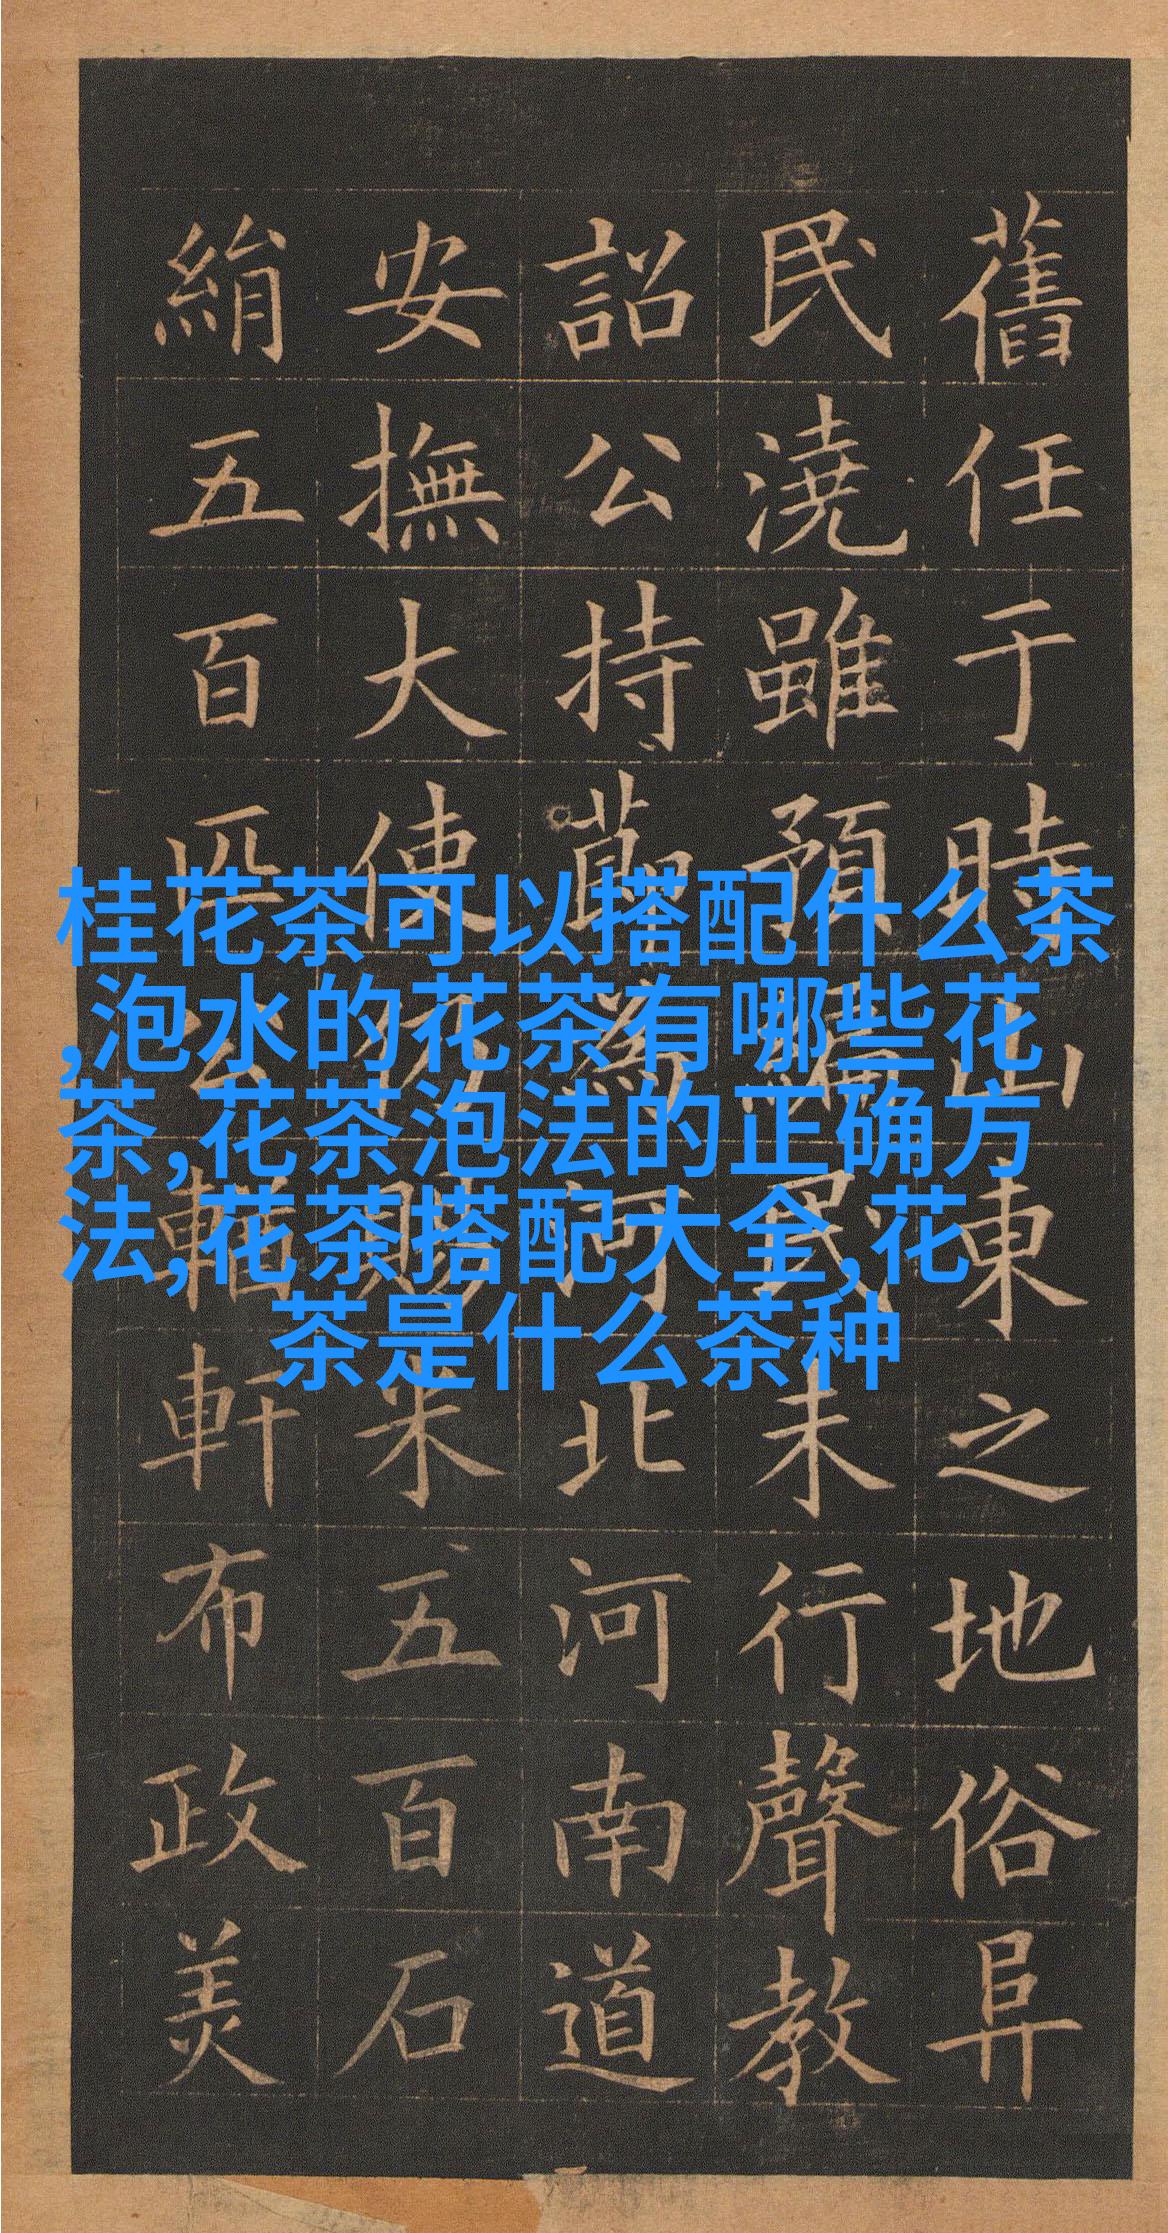 桂花茶可以搭配什么茶
,泡水的花茶有哪些花
茶,花茶泡法的正确方
法,花茶搭配大全,花
茶是什么茶种
舊任于時山東之地俗阜
民澆雖預民未行聲教
詔公持節河北河南道
安撫大使賜米五百石
絹五百匹公輶軒布政美